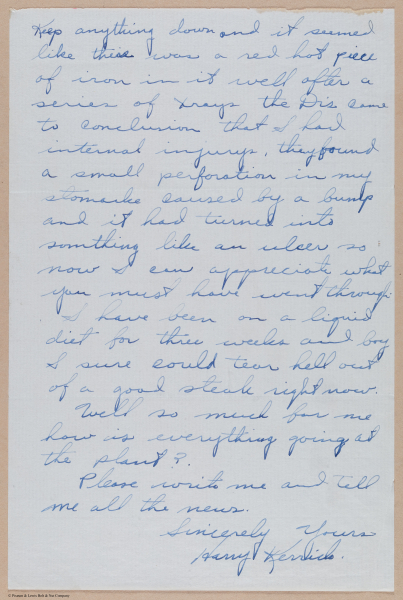 Keep anything down and it seemed
like there was a red hot piece
of iron in it well after a
series of Xrays the Drs came
to conclusion that I had
internal injurys, they found
a small perforation in my
stomacke caused by a bump
and it had turned into
somthing like an ulcer so
now I can appreciate what
you must have went through.
I have been on a liquid
diet for three weeks and boy
I sure could tear hell out
of a good steak right now.
Well so much for me
how is everything going at
the plant?
Please write me and tell
me all the news.
Sincerely Yours
Harry Kerrick.